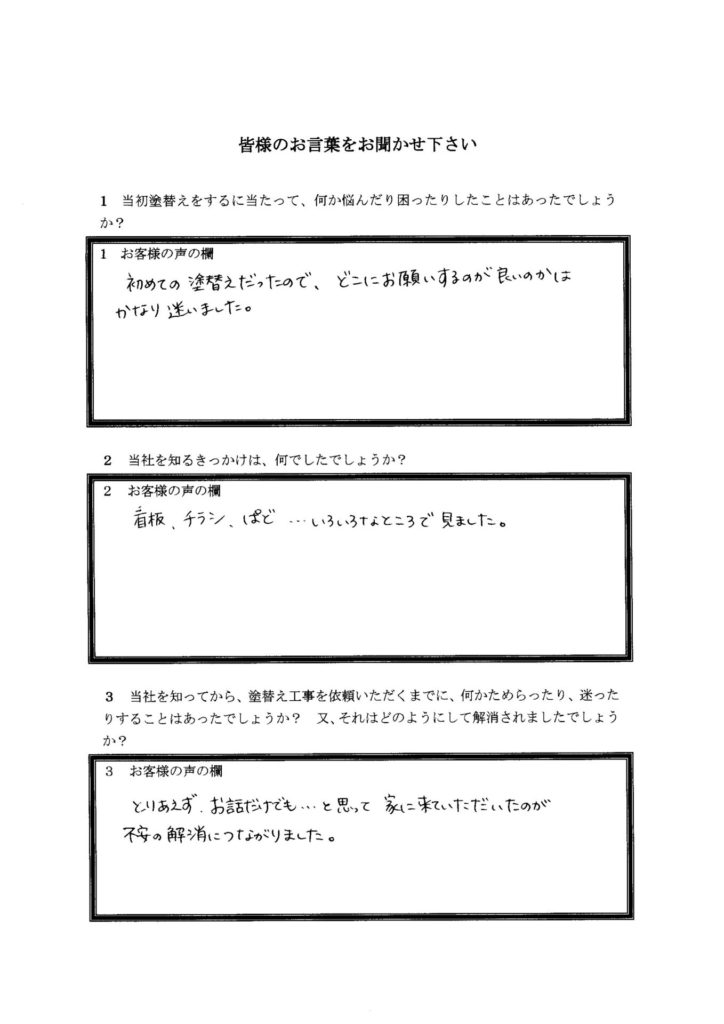 皆様のお言葉をお聞かせ下さい
1 当初塗替えをするに当たって、何か悩んだり困ったりしたことはあったでしょう
か？
1 お客様の声の欄
初めての塗替えだったので、どこにお願いするのが良いのかは
かなり迷いました。
2 当社を知るきっかけは、何でしたでしょうか？
2 お客様の声の欄
看板、チラシ、ぱど…いろいろなところで見ました。
3 当社を知ってから、塗替え工事を依頼いただくまでに、何かためらったり、迷った
りすることはあったでしょうか？ 又、それはどのようにして解消されましたでしょう
か？
3 お客様の声の欄
とりあえず、お話だけでも…と思って家に来ていただいたのが
不安の解消につながりました。